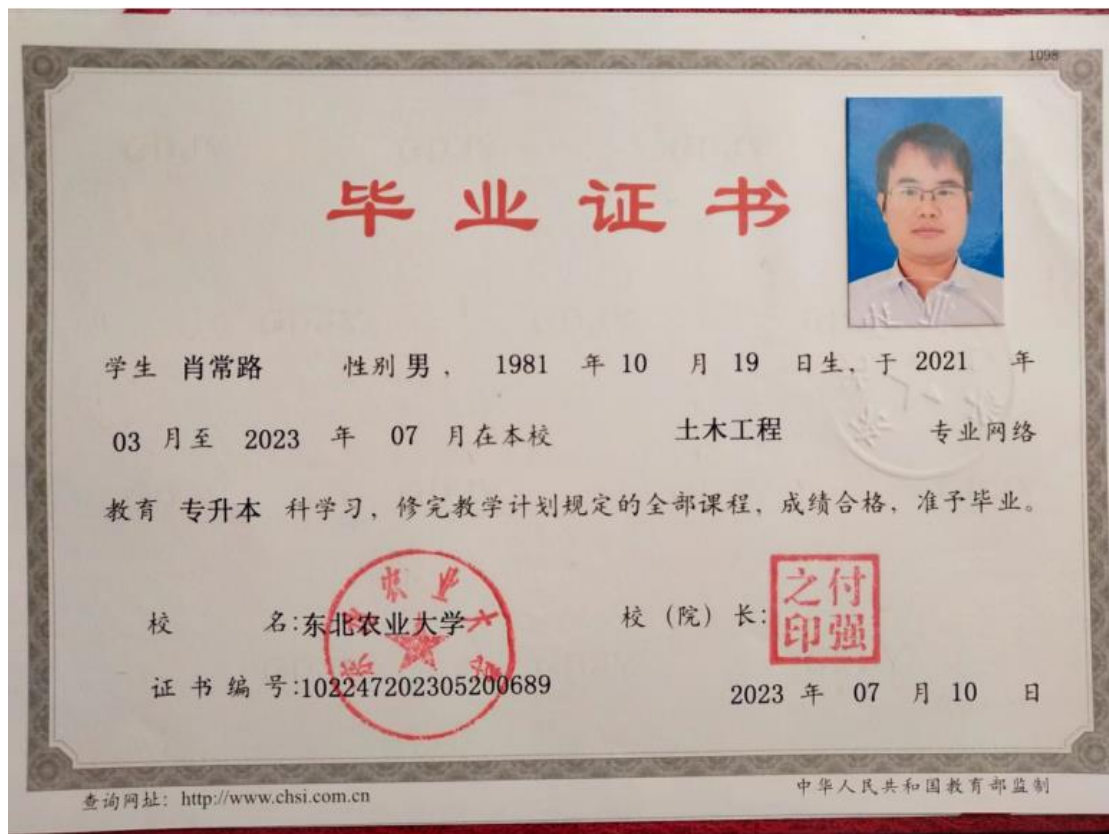 1098
毕业证书
学生 肖常路 性别 男， 1981 年 10 月 19 日生，于 2021 年
03 月至 2023 年 07 月在本校 土木工程 专业网络
教育 专升本 科学习，修完教学计划规定的全部课程，成绩合格，准予毕业。
校 名:东北农业大学 校（院）长: 付强之印
东北农业大学
证书编号:102247202305200689
2023 年 07 月 10 日
查询网址：http://www.chsi.com.cn 中华人民共和国教育部监制